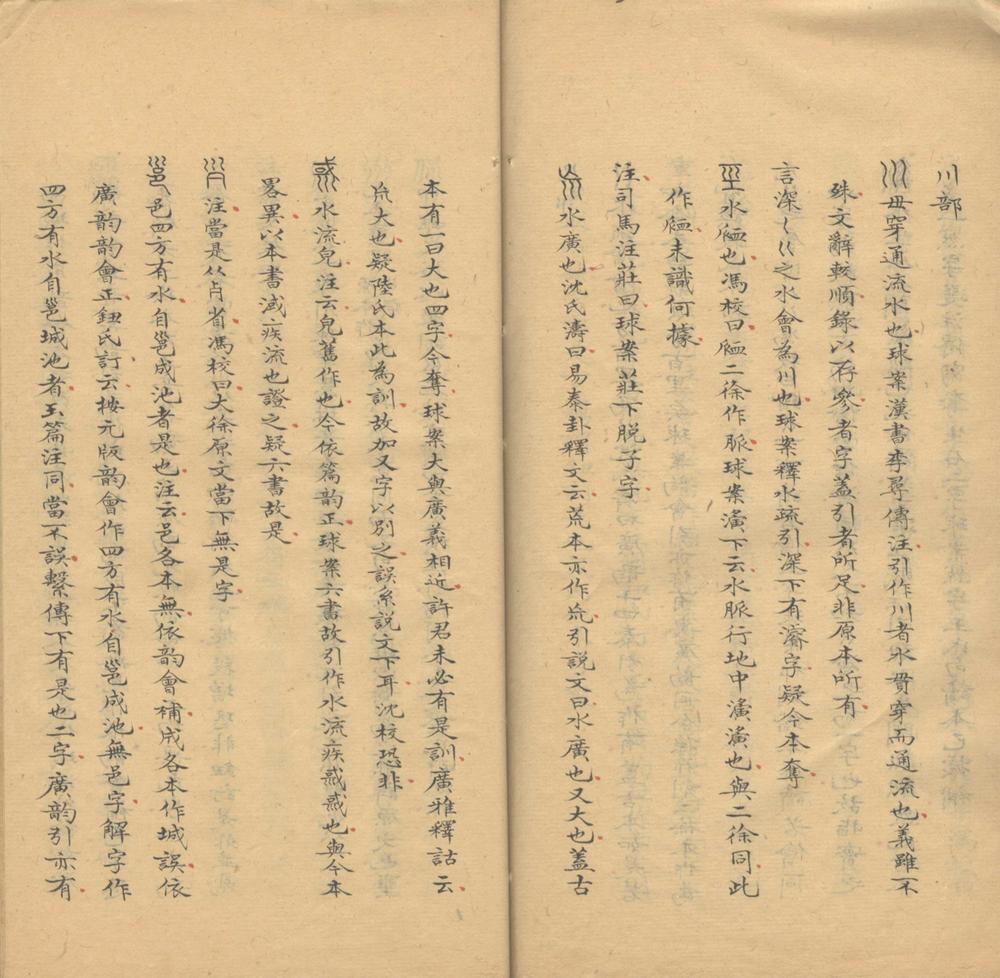 川部
川毌穿通流水也球案漢書李尋傳注引作川者水貫穿而通流也義雖不
殊文辭較順錄以存參者字蓋引者所足非原本所有
言深〈巜之水會為川也球案釋水疏引深下有濬字疑今本奪
巠水𧖴也馮校曰𧖴二徐作脈球案濥下云水脈行地中濥濥也與二徐同此
作𧖴未識何據
注司馬注莊曰球案莊下脱子字
㠩水廣也沈氏濤曰易泰卦釋文云荒本亦作㠩引説文曰水廣也又大也蓋古
本有一曰大也四字今奪球案大與廣義相近許君未必有是訓廣雅釋詁云
㠩大也疑陸氏本此為訓故加又字以別之誤系説文下耳沈校恐非
𢧢水流皃注云皃舊作也今依篇韵正球案六書故引作水流疾惐惐也與今本
畧異以本書淢疾流也證之疑六書故是
𡿪注當是从𣦵省馮校曰大徐原文當下無是字
邕邑四方有水自邕成池者是也注云邑各本無依韵會補成各本作城誤依
廣韵韵會正鈕氏訂云按元版韵會作四方有水自邕成池無邑字解字作
四方有水自邕城池者玉篇注同當不誤繫傳下有是也二字廣韵引亦有